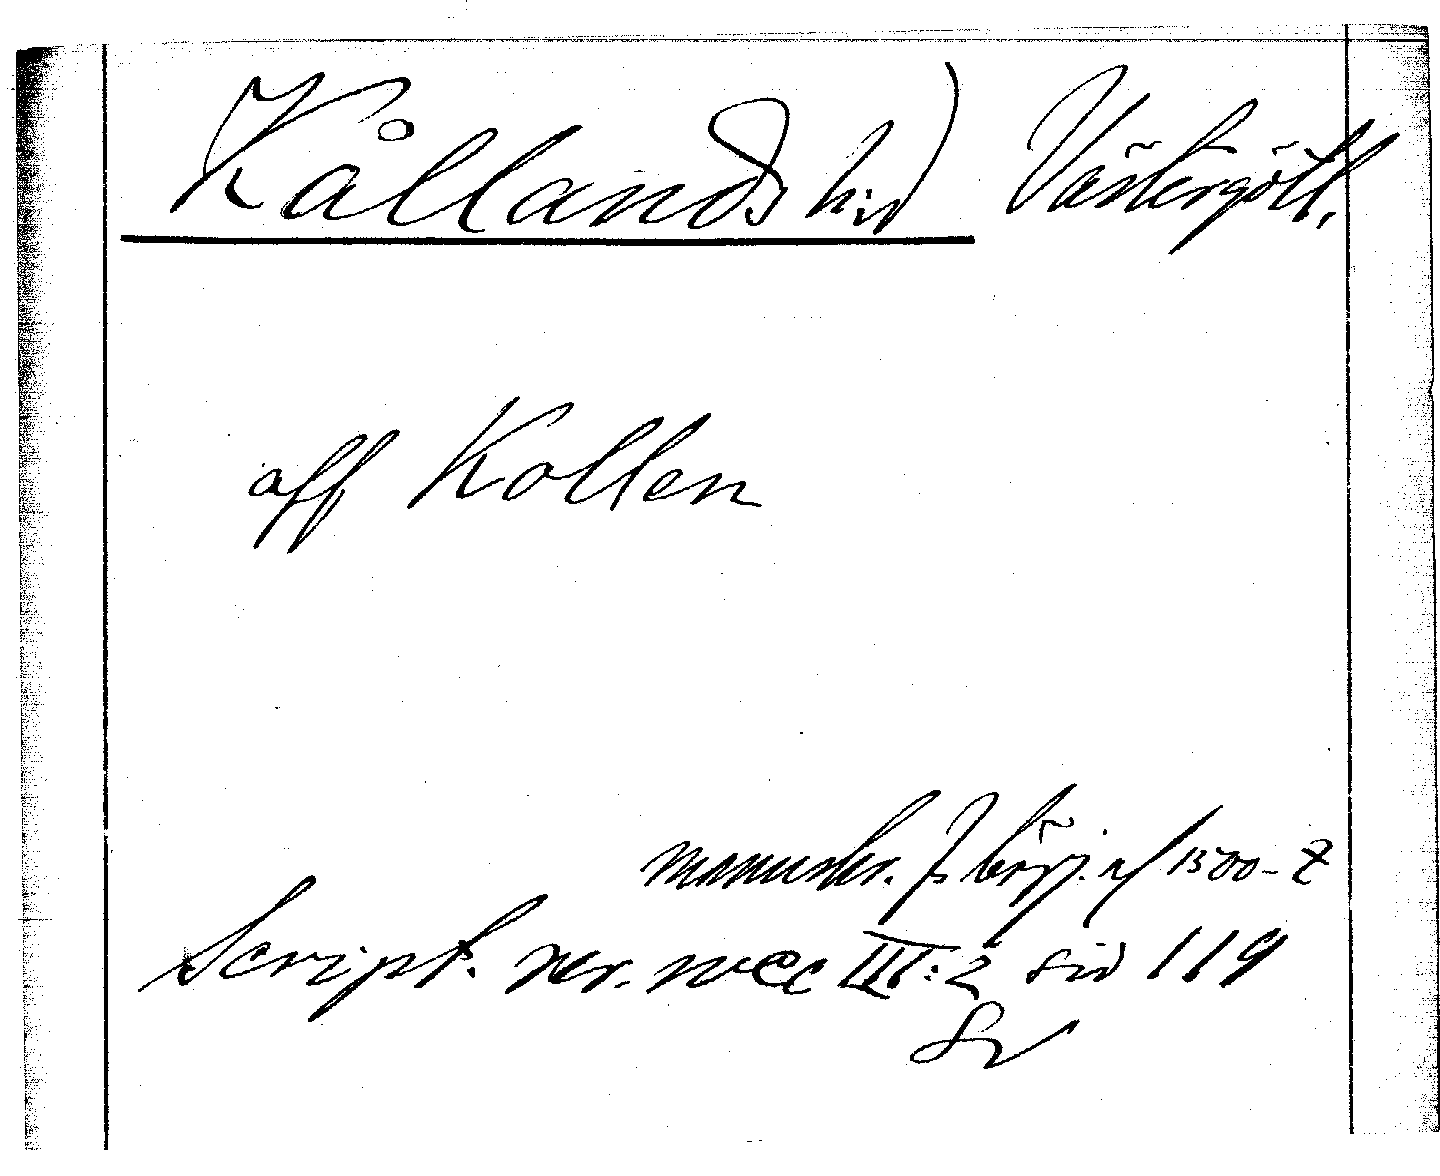 Kållands hd Västergötl.
aff Kollen
manuskr. fr börj. af 1500-t
Script. rer. svec III:2 sid 119